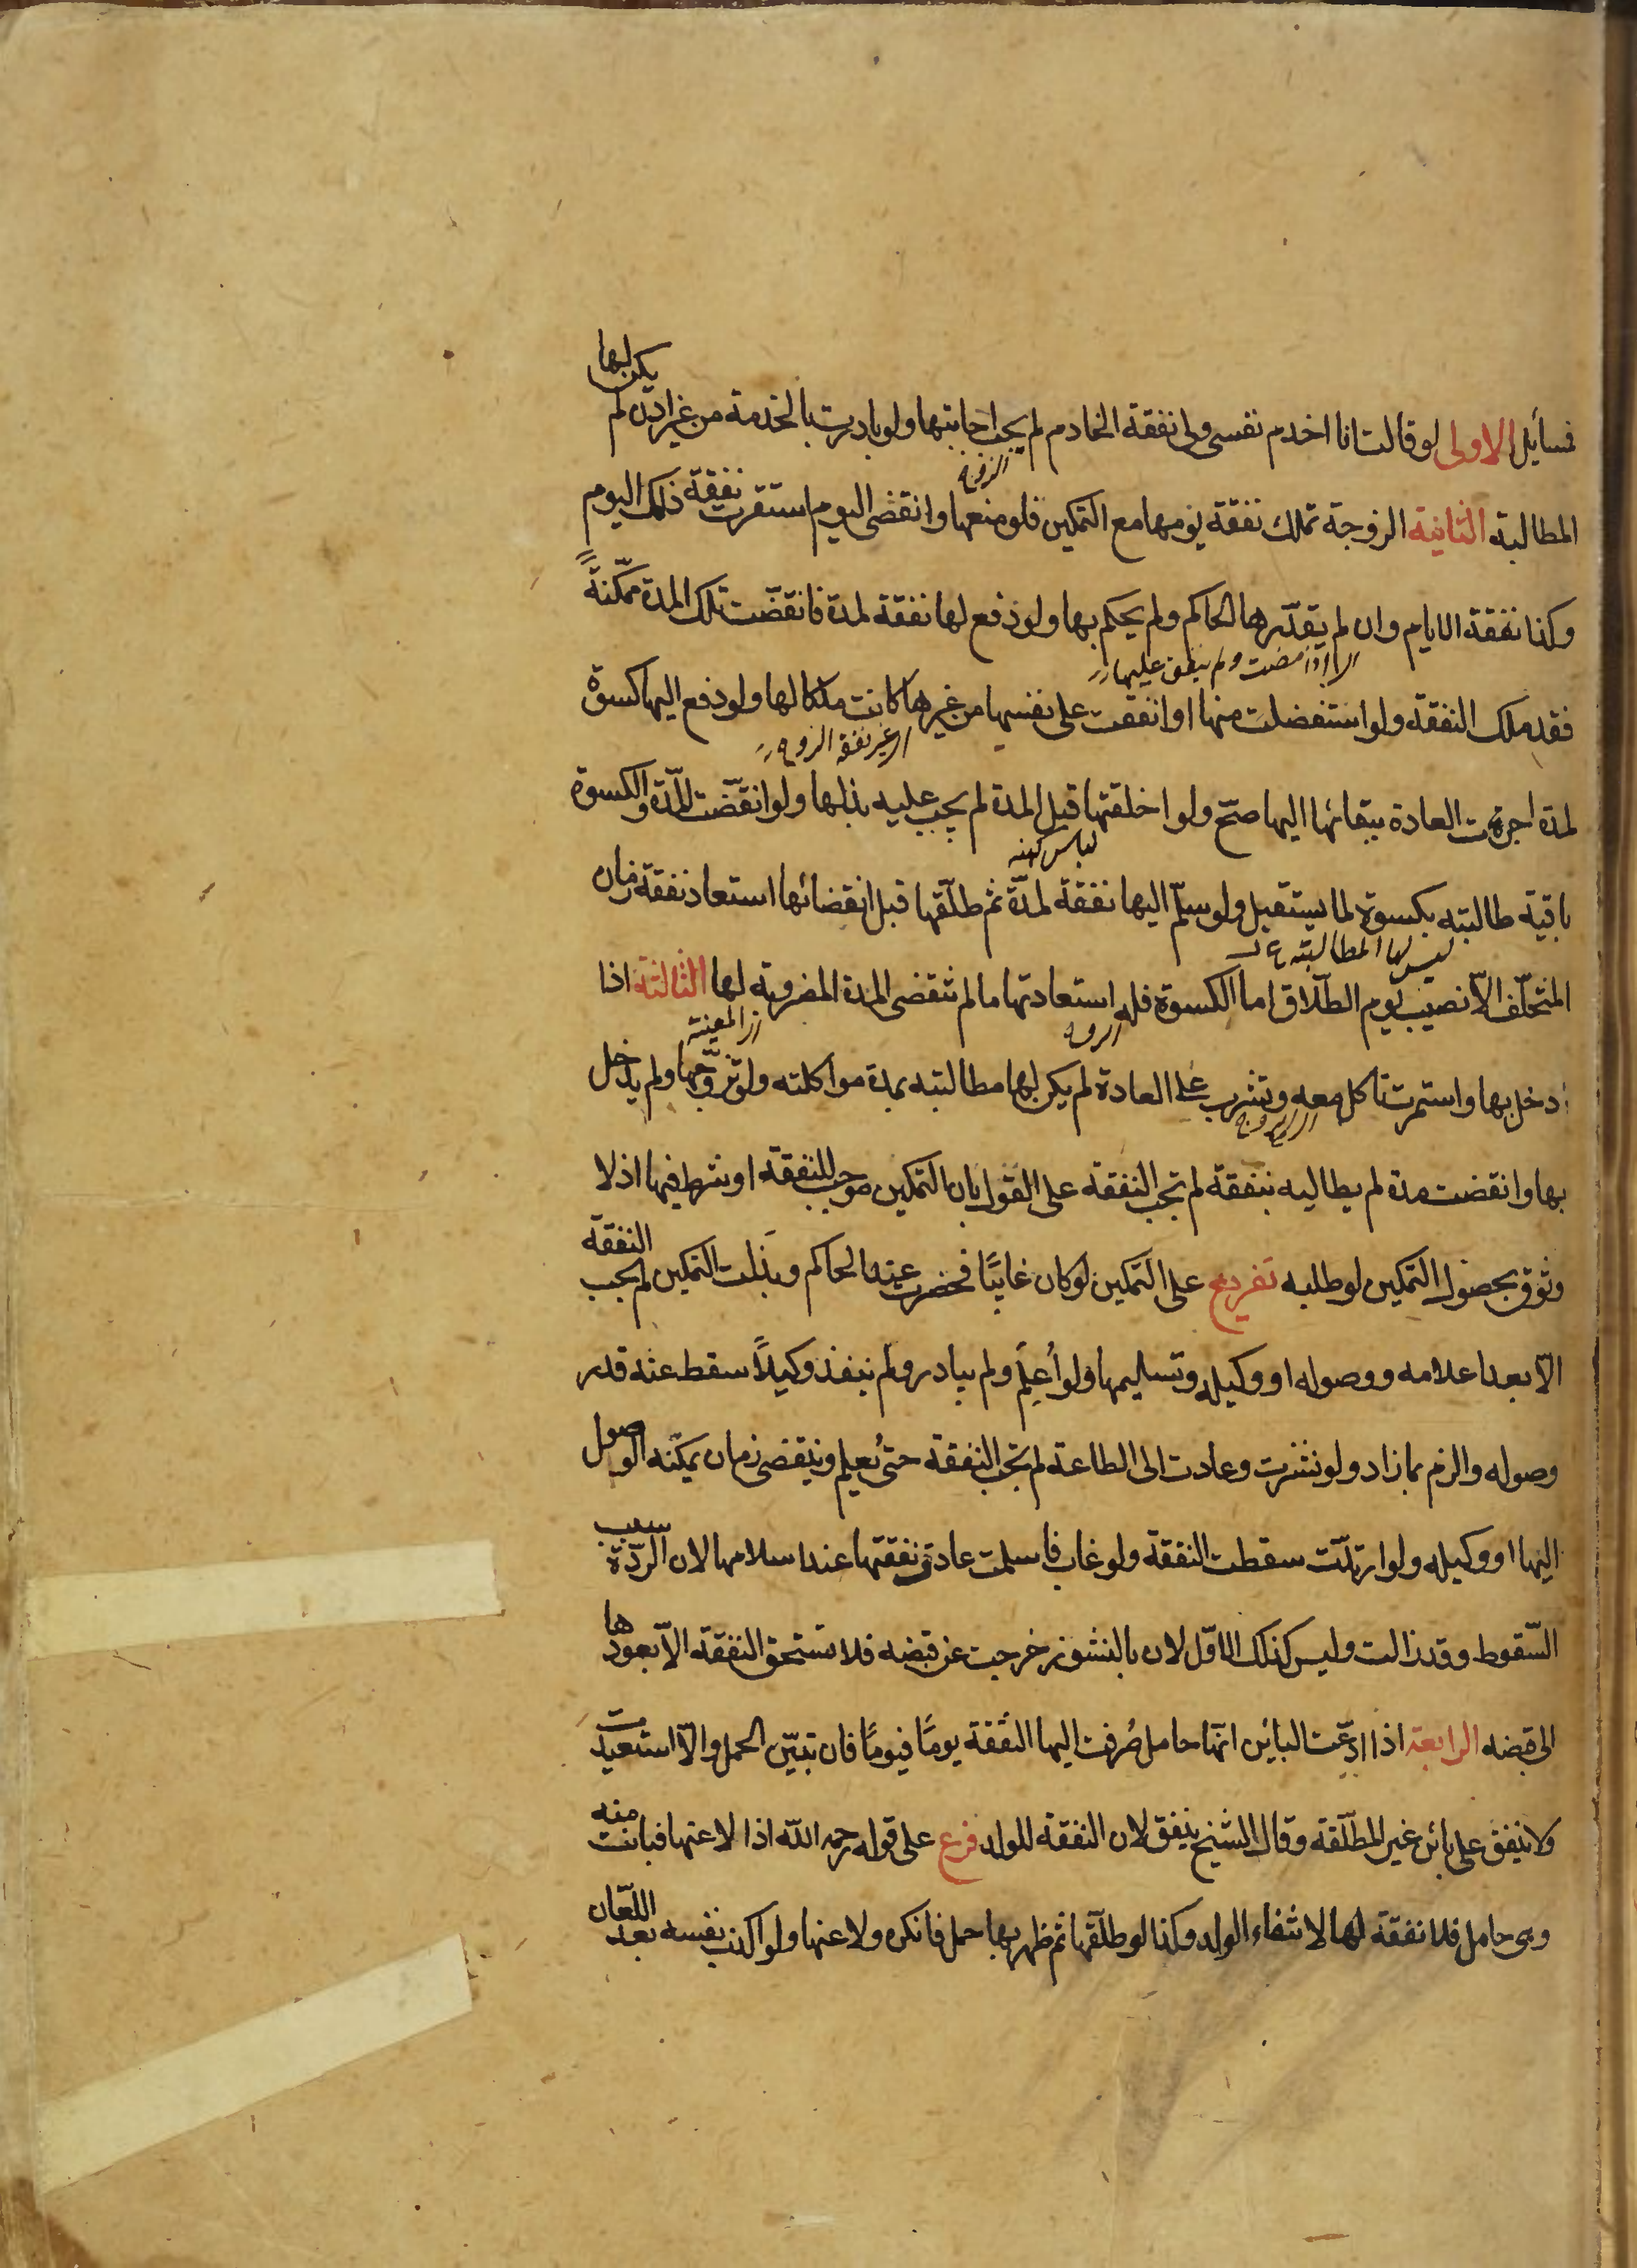 مسائل الاولى لو قالت انا اخدم نفسى ولى نفقة الخادم لم يجب اجابتها ولو بادرت بالخدمة من غير اذن لم يكن لها
المطالبة الثانية الزوجة تملك نفقة يومها مع التمكين فلو منعها وانقضى اليوم استقرت نفقة ذلك اليوم
الزوج
وكذا نفقة الايام وان لم يقدّرها الحاكم ولم يحكم بها ولو دفع لها نفقة لمدة فانقضت تلك المدة ممكّنةً
اذا مضت ولم ينفق عليها
فقد ملك النفقة ولو استفضلت منها او انفقت على نفسها من غيرها كانت ملكا لها ولو دفع اليها كسوة
غير نفقة الزوج
لمدة جرت العادة ببقائها اليها صحّ ولو اخلقتها قبل المدة لم يجب عليه بذلها ولو انقضت المدّة والكسوة
لباس كهنه
باقية طالبته بكسوة لما يستقبل ولو سلّم اليها نفقة لمدّة ثم طلّقها قبل انقضائها استعاد نفقة زمان
ليس لها المطالبة
المتخلّف الاّ نصيب يوم الطلاق اما الكسوة فله استعادتها ما لم تنقضى المدة المضروبة لها الثالثة اذا
المعينة
دخل بها واستمرت تاكل معه وتشرب على العادة لم يكن لها مطالبته بمدة مواكلته ولو تزوّجها ولم يدخل
بها وانقضت مدة لم يطالبه بنفقة لم تجب النفقة على القول بان التمكين موجب للنفقة او شرط فيها اذ لا
وثوق بحصول التمكين لو طلبه تفريع على التمكين لو كان غايبًا فحضرت عند الحاكم وبذلت التمكين لم تجب النفقة
الاّ بعد اعلامه ووصوله او وكيله وتسليمها ولو أعلم ولم يبادر ولم ينفذ وكيلاً سقط عنه قدر
وصوله والزم بما زاد ولو نشزت وعادت الى الطاعة لم تجب النفقة حتى يُعلم وينقضى زمان يمكنه الوصول
اليها او وكيله ولو ارتدّت سقطت النفقة ولو غاب فاسلمت عادت نفقتها عند اسلامها لان الردّة سبب
السّقوط وقد زالت وليس كذلك الاوّل لان بالنشوز خرجت عن قبضه فلا تستحق النفقة الاّ بعودها
الى قبضه الرابعة اذا ادّعت البائن انّها حامل صُرفت اليها النفقة يومًا فيومًا فان تبيّن الحمل والاّ استعيدت
ولا ينفق على بائن غير المطلّقة وقال الشيخ ينفق لان النفقة للولد فرع على قوله رحمه الله اذا لاعنها فبانت منه
وهى حامل فلا نفقة لها لانتفاء الولد وكذا لو طلّقها ثم ظهر بها حمل فانكره ولاعنها ولو اكذب نفسه بعد اللعان